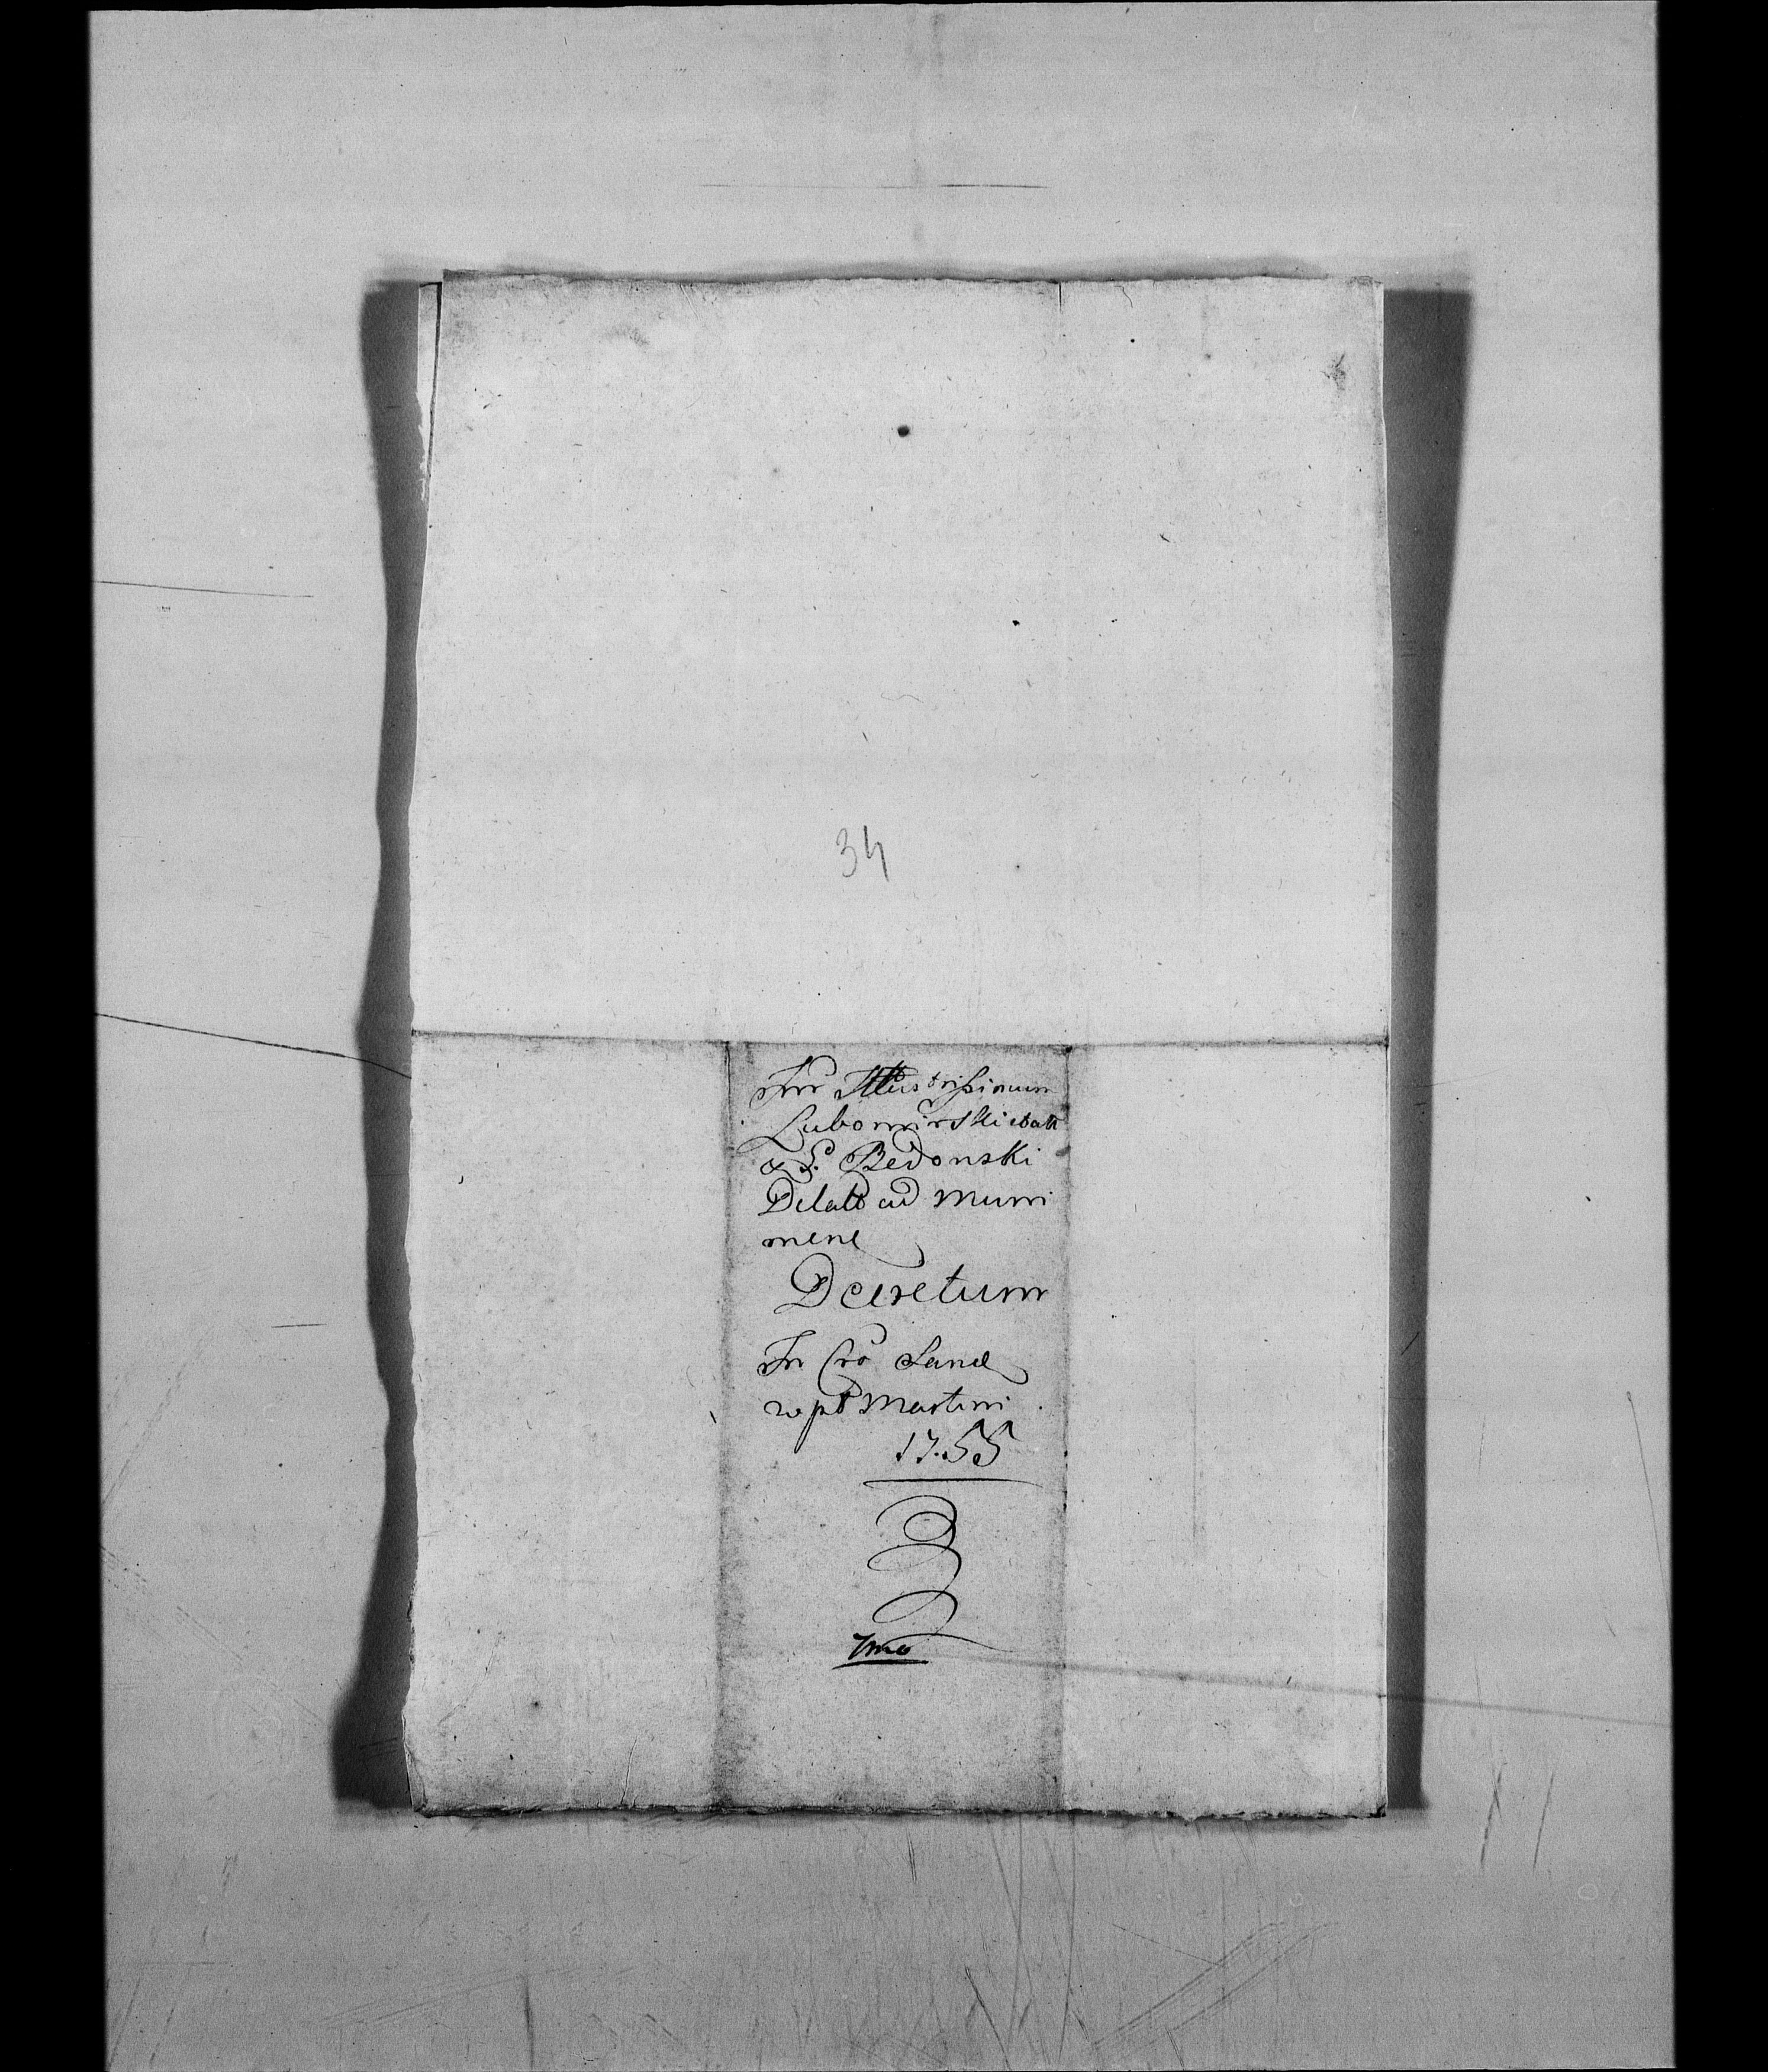 34
Inr Illustrissimum
Lubomirski
a G. Bedonski
Delatt ad Muni
mene
Decretum
In Cro Sand
Martini
17.55
7mo